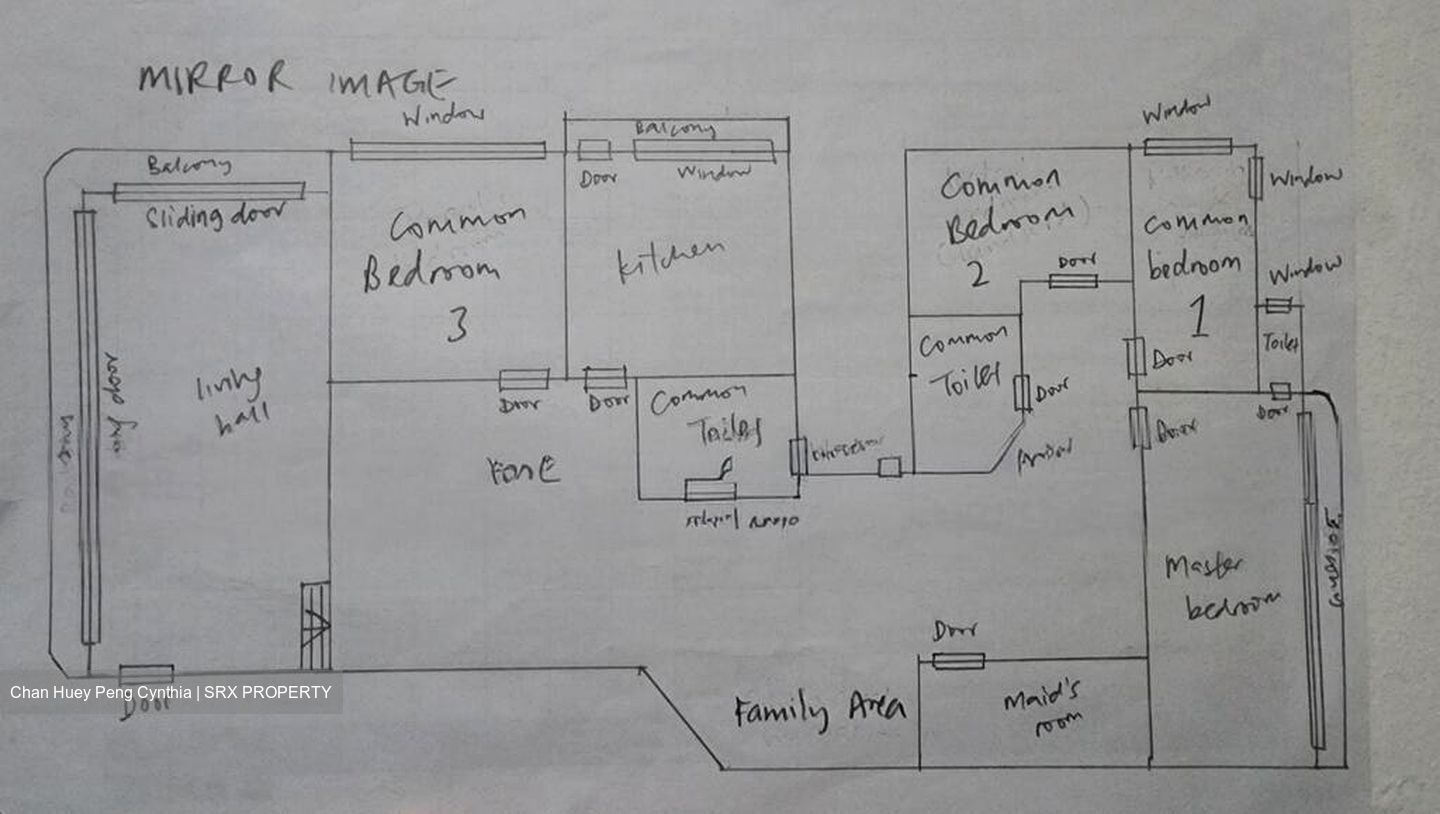 MIRROR IMAGE
Window
Balcony
Sliding door
Common
Bedroom
3
Balcony
Door
Window
Kitchen
Window
Common
Bedroom
2
Door
Window
Common
bedroom
1
Window
Toilet
Door
Common
Toilet
Door
Door
Door
living
hall
Door
Door
Common
Toilet
Master
bedroom
Door
Maid's
room
Family Area
Door
Chan Huey Peng Cynthia | SRX PROPERTY